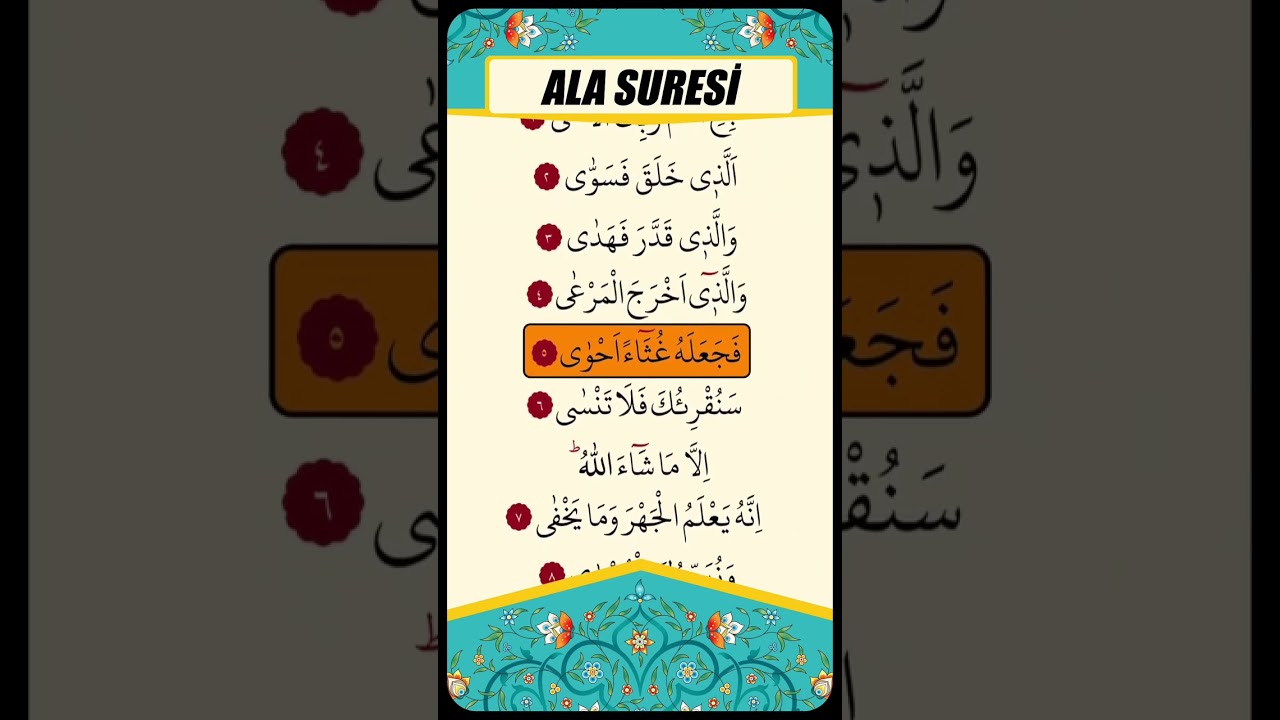 ALA SURESİ
اَلَّذٖى خَلَقَ فَسَوّٰى ٢
وَالَّذٖى قَدَّرَ فَهَدٰى ٣
وَالَّذٖٓى اَخْرَجَ الْمَرْعٰى ٤
فَجَعَلَهُ غُثَٓاءً اَحْوٰى ٥
سَنُقْرِئُكَ فَلَا تَنْسٰى ٦
اِلَّا مَا شَٓاءَ اللّٰهُ ؕ
اِنَّهُ يَعْلَمُ الْجَهْرَ وَمَا يَخْفٰى ٧
٨